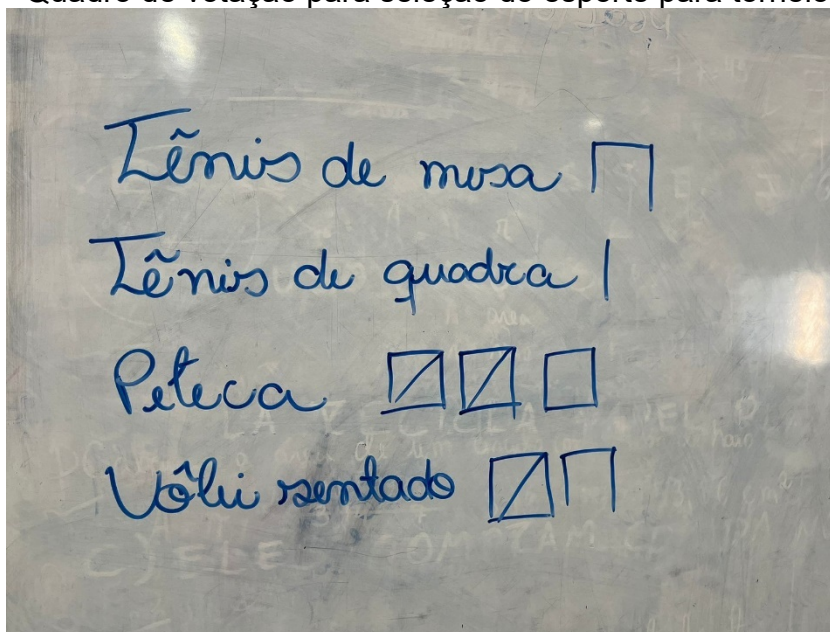 Quadro de votação para seleção do esporte para torneio
Tênis de mesa
Tênis de quadra |
Peteca
Vôlei sentado